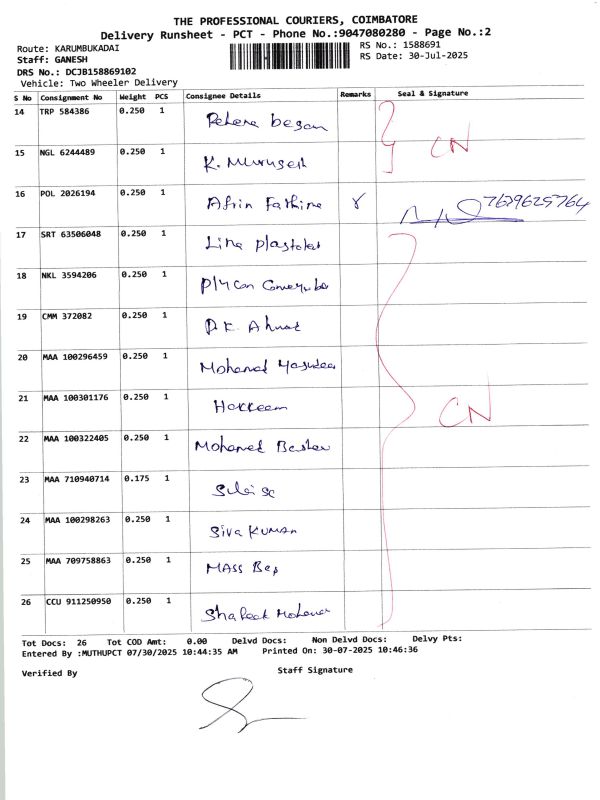 THE PROFESSIONAL COURIERS, COIMBATORE
Delivery Runsheet - PCT - Phone No.:9047080280 - Page No.:2
Route: KARUMBUKADAI RS No.: 1588691
Staff: GANESH RS Date: 30-Jul-2025
DRS No.: DCJB158869102
Vehicle: Two Wheeler Delivery
S No Consignment No Weight PCS Consignee Details Remarks Seal & Signature
14 TRP 584386 0.250 1 Rehena began
CN
15 NGL 6244489 0.250 1 K. Murugesh
16 POL 2026194 0.250 1 Afrin Fathima 7629625764
17 SRT 63506048 0.250 1 Lina
18 NKL 3594206 0.250 1
19 CMM 372082 0.250 1 P.K. Ahmad
20 MAA 100296459 0.250 1 Mohamed
21 MAA 100301176 0.250 1 Hakkeem
CN
22 MAA 100322405 0.250 1 Mohamed
23 MAA 710940714 0.175 1
24 MAA 100298263 0.250 1 Siva KUMAR
25 MAA 709758863 0.250 1 MASS
26 CCU 911250950 0.250 1
Tot Docs: 26 Tot COD Amt: 0.00 Delvd Docs: Non Delvd Docs: Delvy Pts:
Entered By :MUTHUPCT 07/30/2025 10:44:35 AM Printed On: 30-07-2025 10:46:36
Verified By Staff Signature